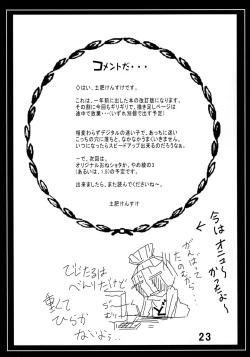 コメントだ・・・
◇はい、土肥けんすけです。
これは、一年前に出した本の改訂版になります。
その割に今回もギリギリで、描き足しページは
途中で放棄・・・(いずれ別個で出す予定)
相変わらずデジタルの迷い子で、あっちに迷い
こっちの穴に落ちと、なかなかうまくいきません。
いつになったらスピードアップ出来るのだろうなぁ。
～で、次回は、
オリジナルおねショタか、やめ綾の3
(あるいは、1.5)の予定です。
出来ましたら、また読んでくださいね～。
土肥けんすけ
今はオニュー
かったな～
がんばって
でじたるは
べんりだけど
重くて
ひらか
ないよう・・・
23